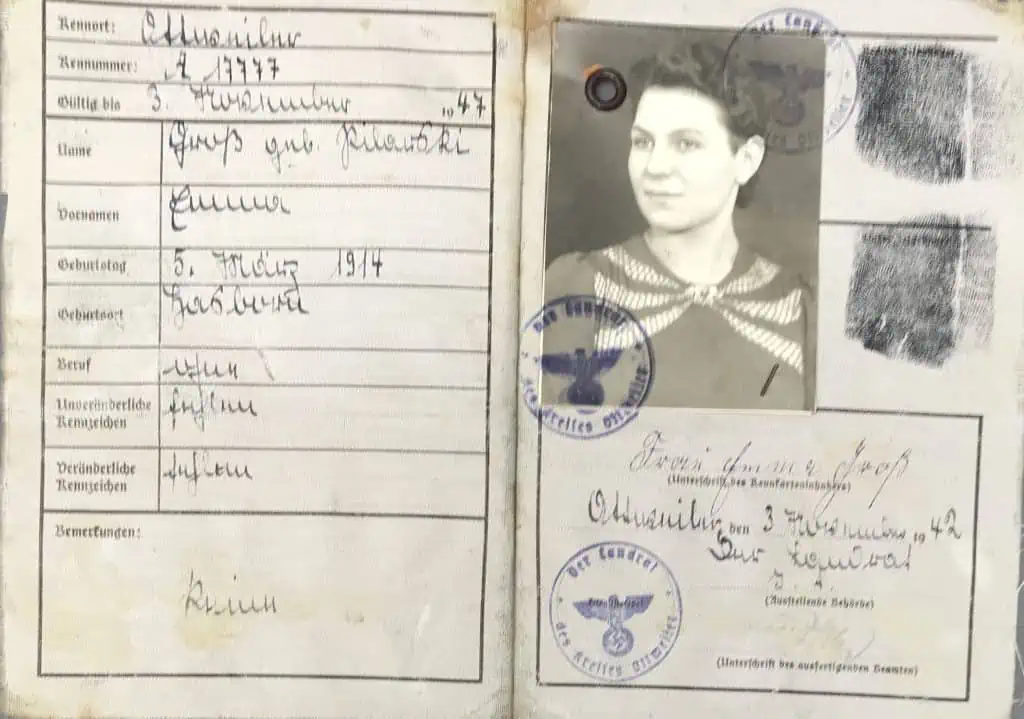 Kennort: Ottweiler
Kennummer: A 17777
Gültig bis 3. November 1947
Name Groß geb. Pilawski
Vornamen Emma
Geburtstag 5. März 1914
Geburtsort Hasborn
Beruf ohne
Unveränderliche Kennzeichen fehlen
Veränderliche Kennzeichen fehlen
Bemerkungen:
Keine
Der Landrat
Der Landrat
des Kreises Ottweiler
Frau Emma Groß
(Unterschrift des Kennkarteninhabers)
Ottweiler, den 3 November 1942
Der Landrat
(Ausstellende Behörde)
Der Landrat
des Kreises Ottweiler
(Unterschrift des ausfertigenden Beamten)